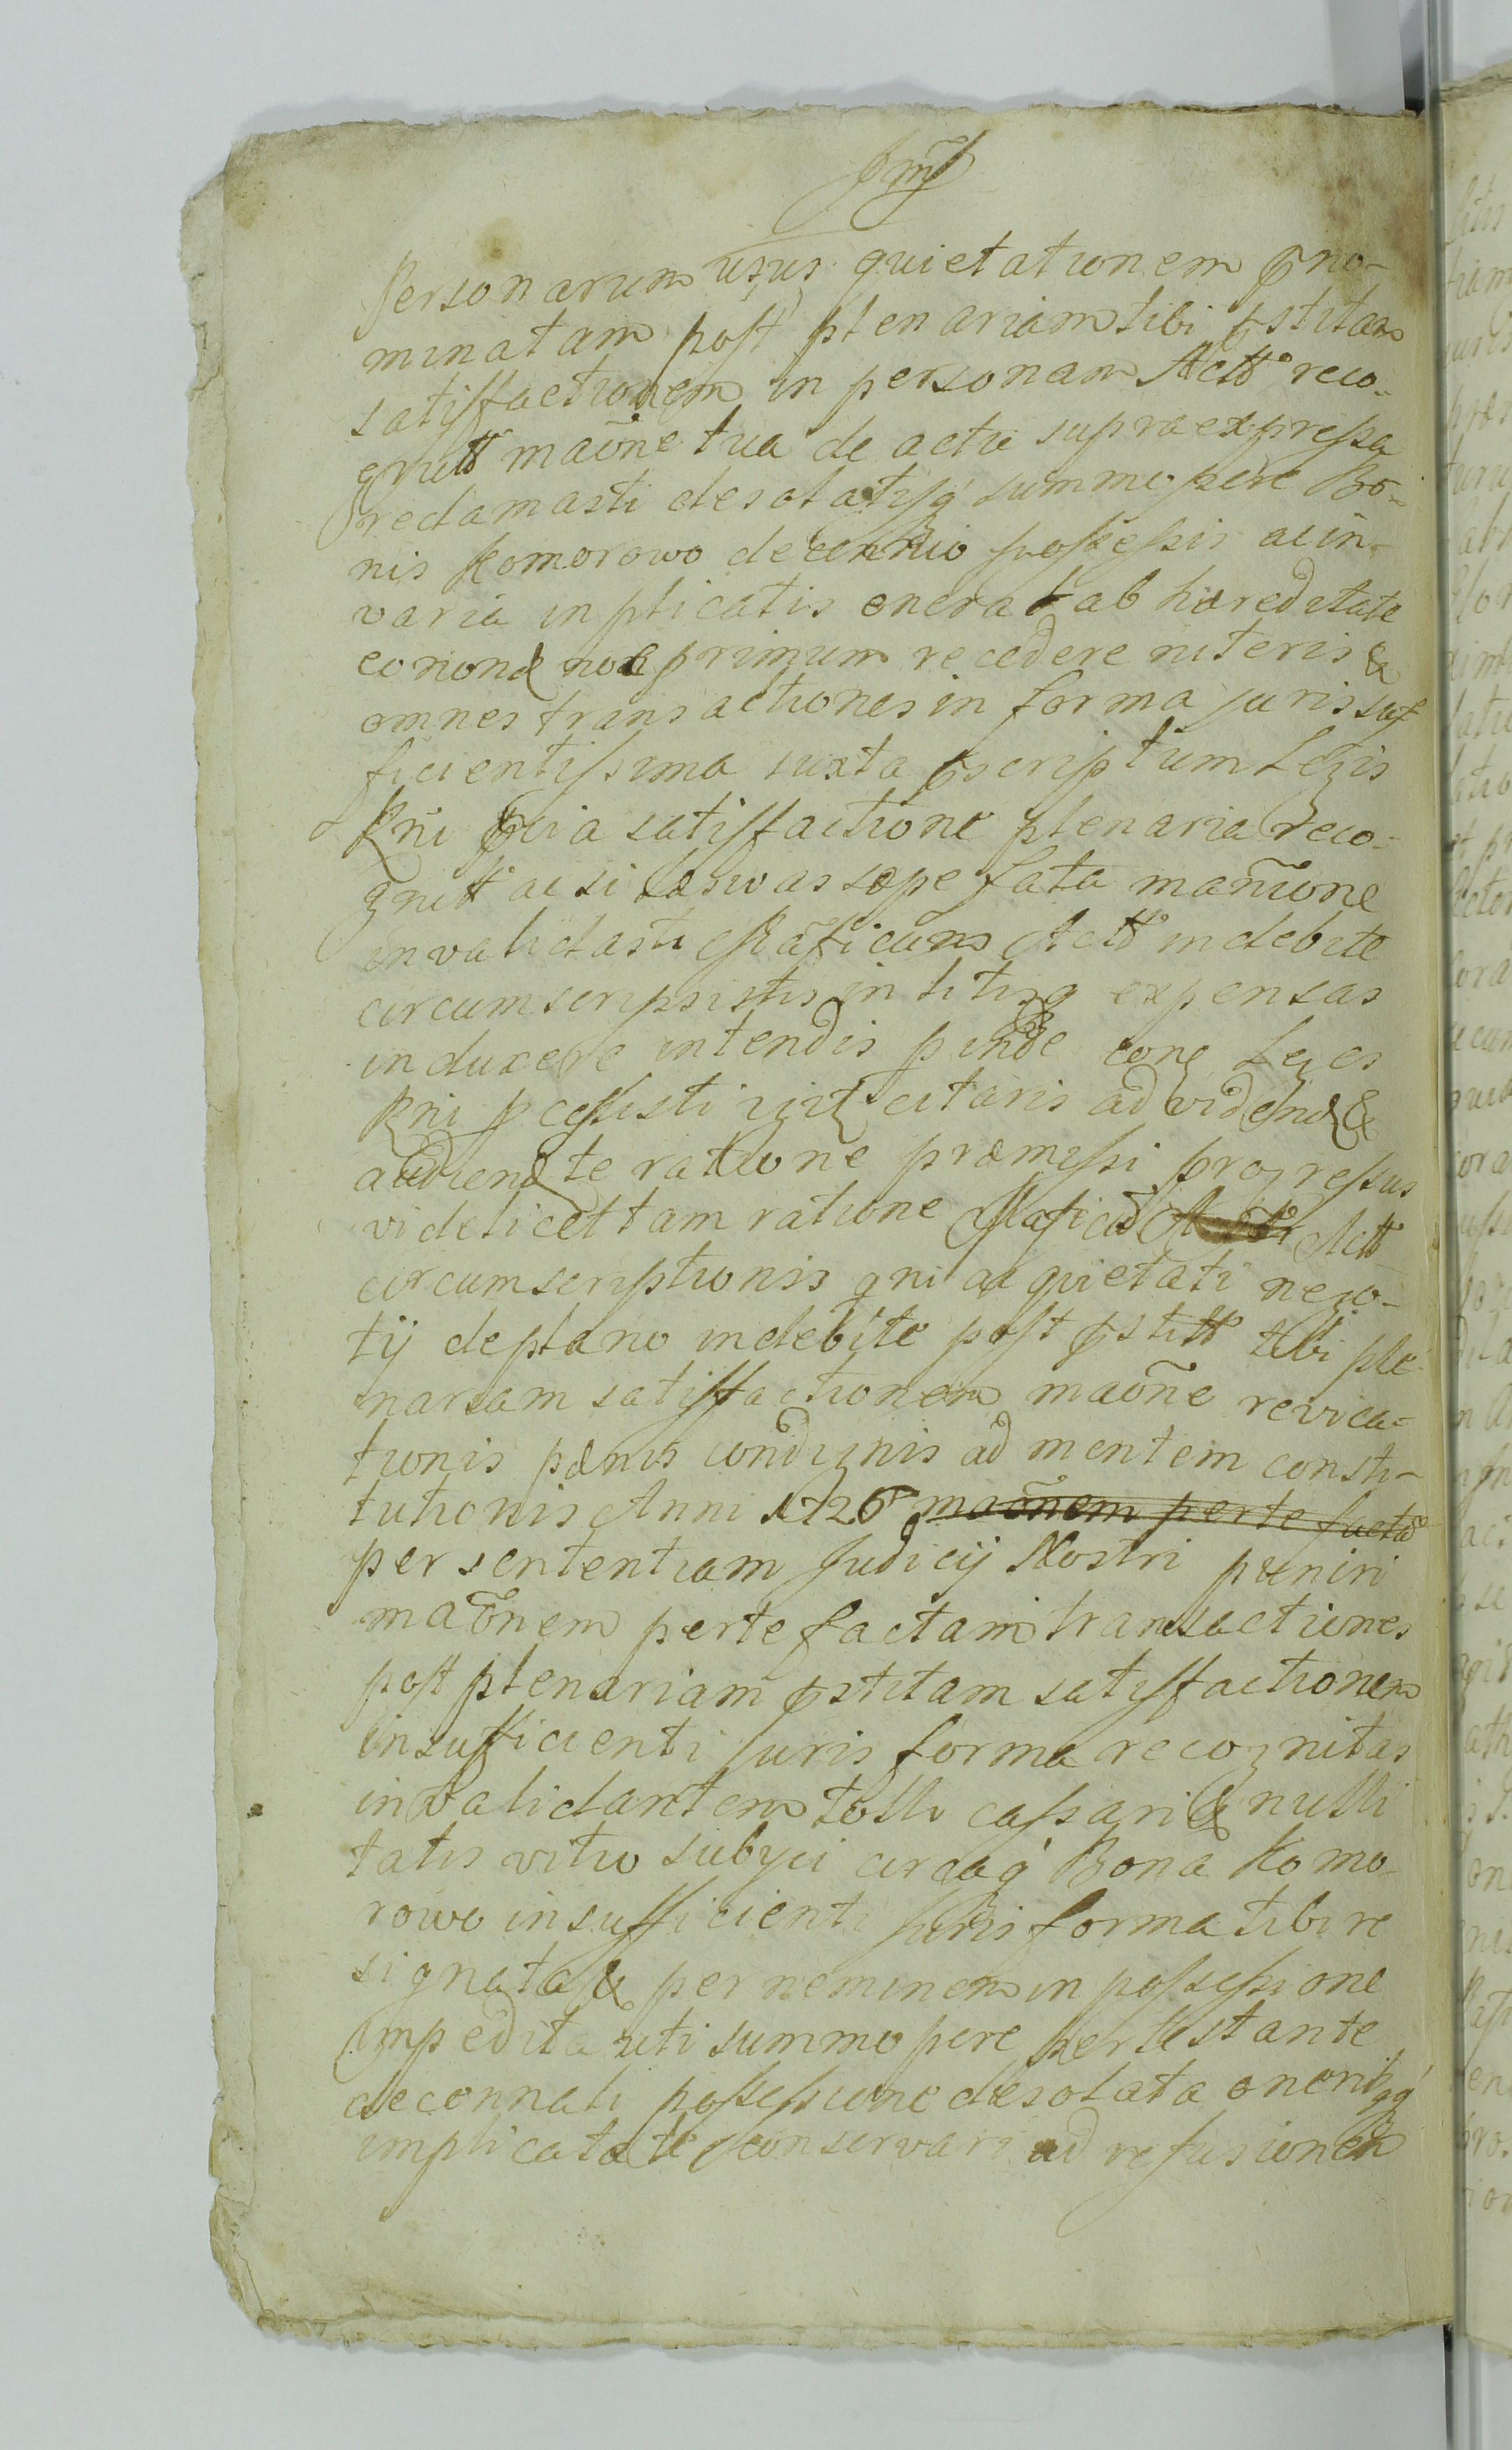 Personarum usus quietationem pno-
minatam post plenariam tibi pstitam
satisfactionem in personam Actt° reco-
gnitt maõne tua de actu supra expressa
reclamasti desolatisq́ summopere Bo-
nis Komorowo decennio possessis ac in
varia inplicatis onera ab hæreditate
eorond primum recedere niteris &
omnes transactiones in forma juris suf
ficientissima iuxta pscriptum Legis
Rñi a satisfactione plenaria reco-
gnitt ac si sæpe fata manõne
invalidasti Actt° indebite
circumscripsistis in litisq expensas
inducere intendis pinde Leges
Rñi citaris ad vidend &
audiend te ratione præmissi progressus
videlicet tam ratione Actt
circumscriptionis qni ac quietati nego-
tij deplano indebite post pstitt tibi ple-
nariam satisfactionem maõne revica-
tionis pænis condignis ad mentem consti-
tutionis Anni 1726 maõnem per te factã
per sententiam Judicij Nostri puniri
maõnem per te factam transactiones
post plenariam pstitam satisfactionem
in sufficienti juris forma recognitas
invalidantem tolli cassari & nulli
tatis vitio subyci circaq́ Bona Komo-
rowo in sufficienti juris forma tibi re
signata & per neminem in possessione
impedita uti summopere
decennali possessione desolata oneribqq́
implicata te conservari ad refusionem